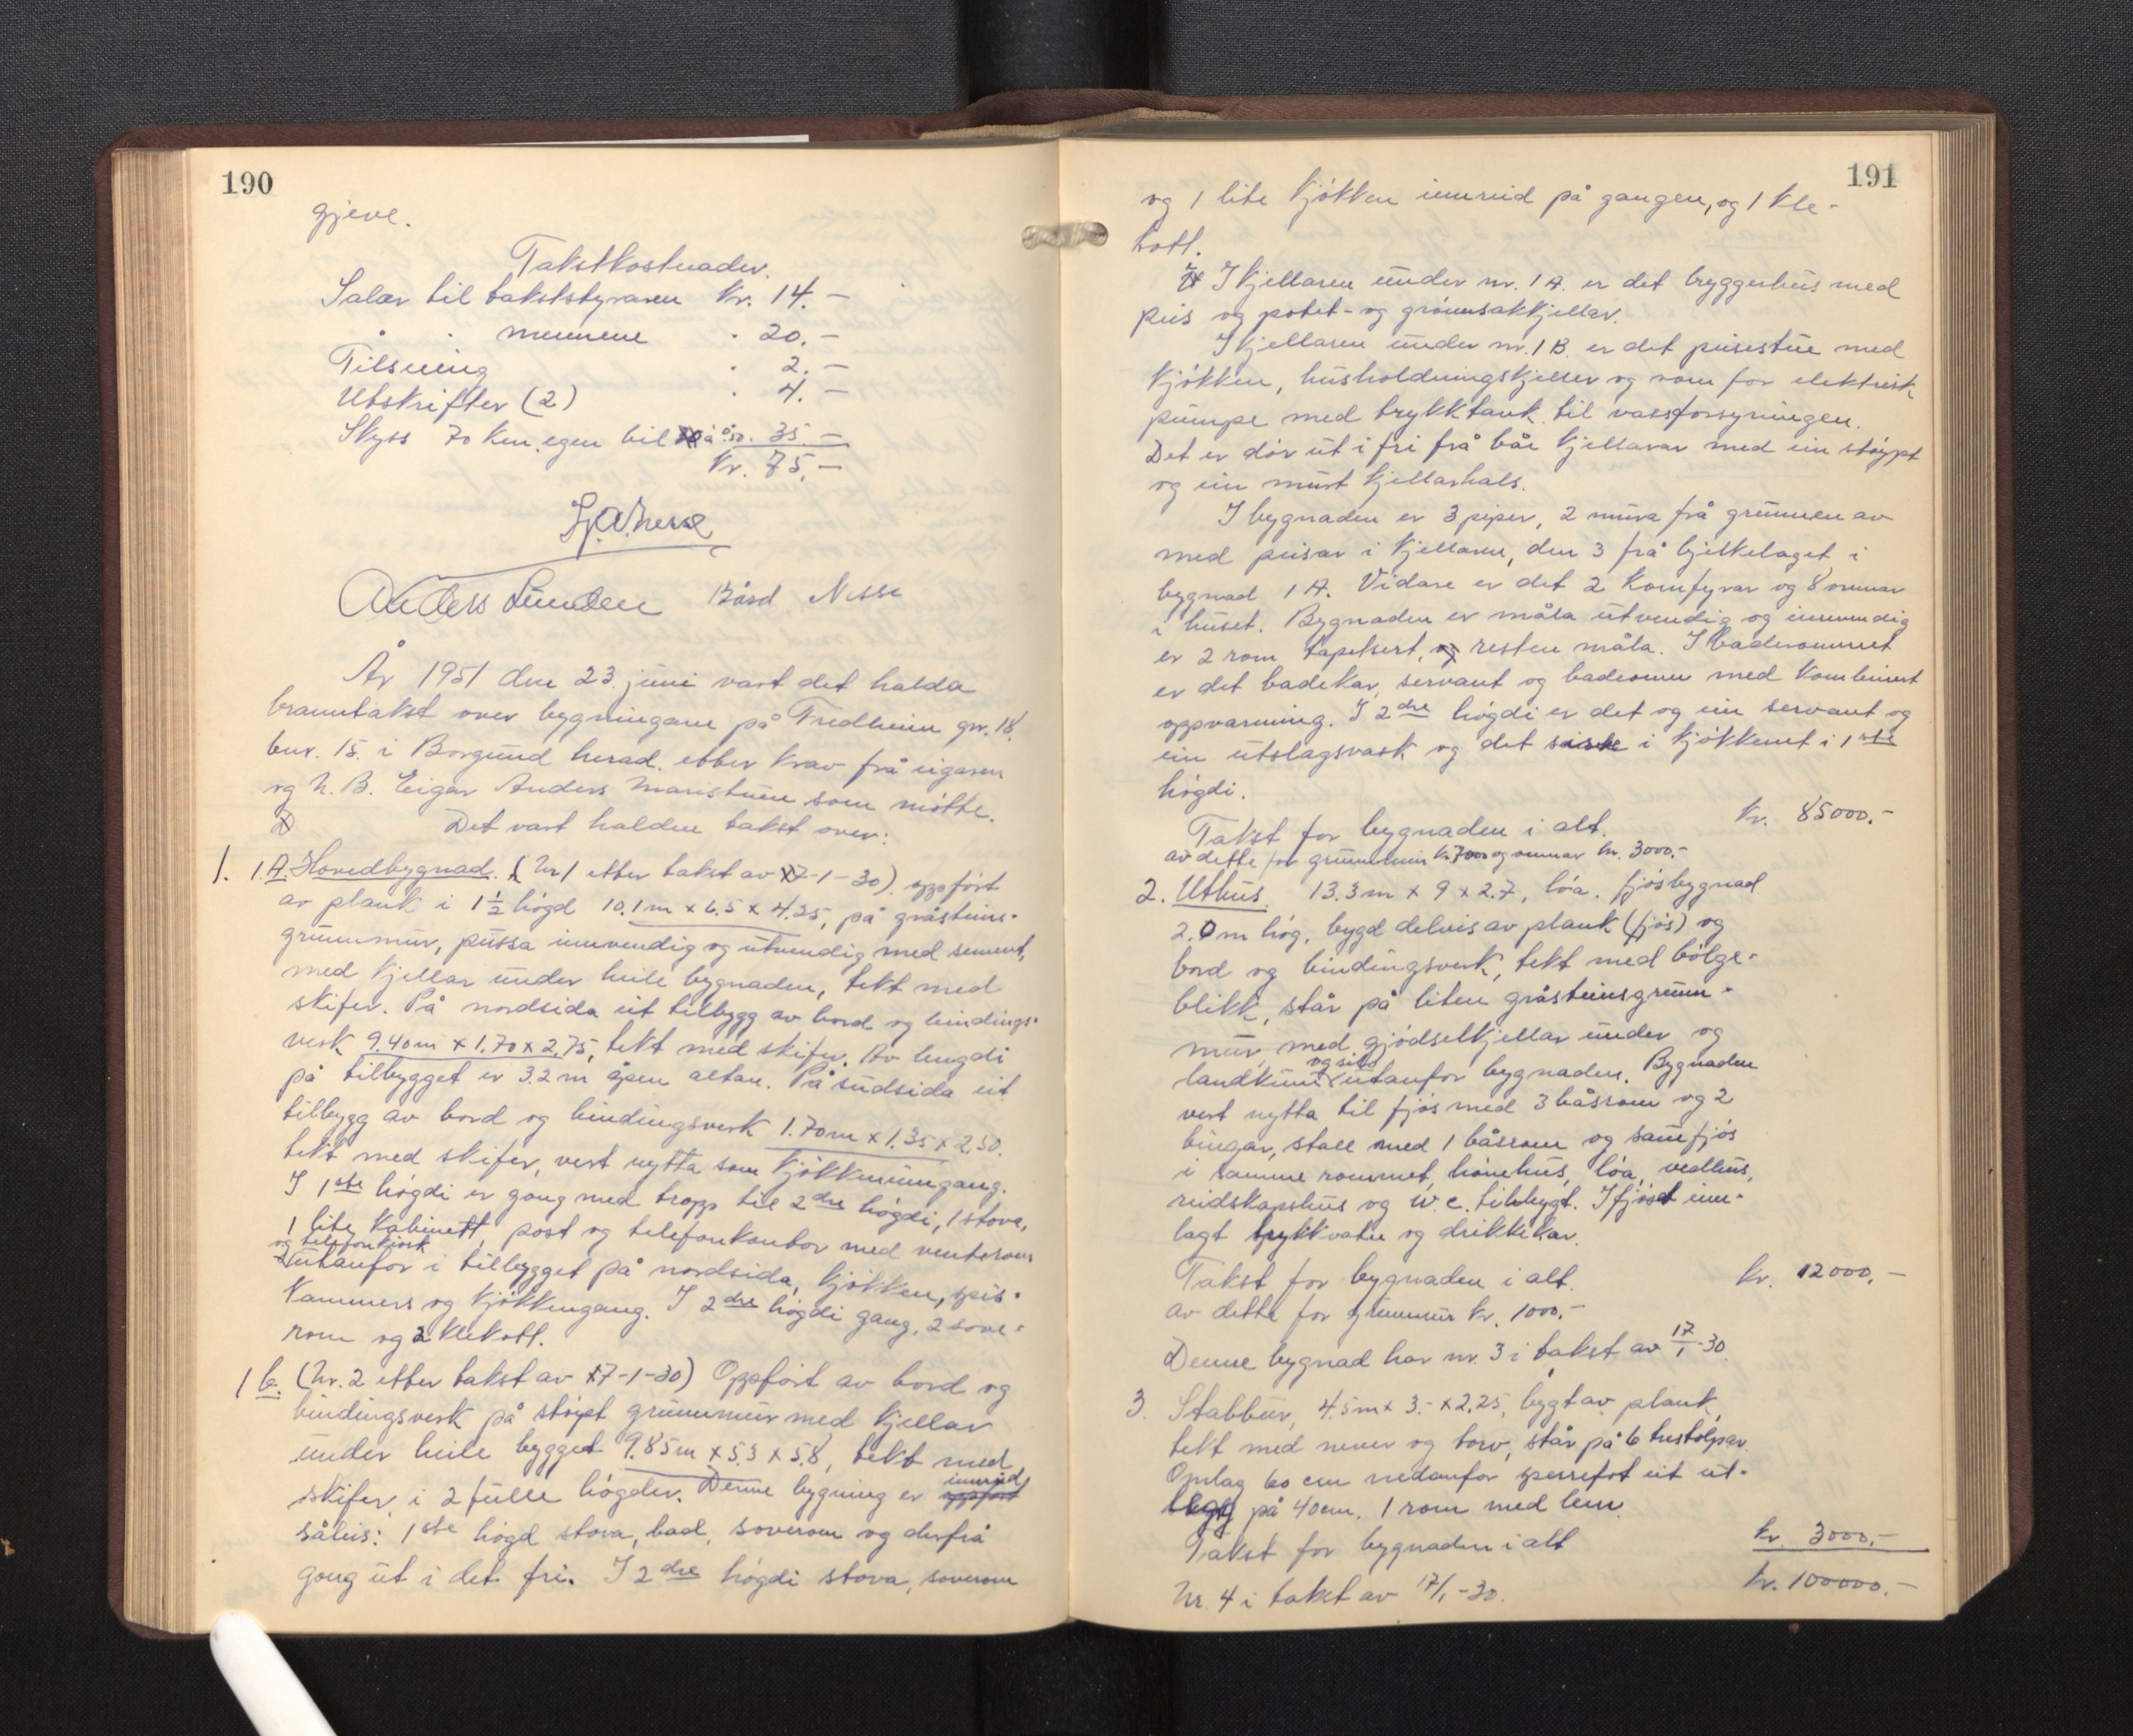 190
gjeve.
Takstkostnader.
Salær til takststyraren Kr. 14.-
" " mennene " 20.-
Tilsning " 2.-
Utskrifter (2) " 4.-
Skyss 70 km. egen bil à 0.50. 35.-
Kr. 75.-
Anders Lunden Bård Nesse
År 1951 den 23. juni vart det halda
branntakst over bygningane på Fredheim gnr. 18.
bnr. 15. i Borgund herad. etter krav frå eigaren
og N. B. Eigar Anders Maristuen som møtte.
Det vart halden takst over:
1. 1.A. Hovedbygnad. (Nr 1 etter takst av 17-1-30) oppført
av plank i 1½ høgd 10.1m x 6.5 x 4.25, på gråsteins-
grunnmur, pussa innvendig og utvendig med sement,
med kjellar under heile bygnaden, tekt med
skifer. På nordsida eit tilbygg av bord og bindings-
verk 9.40m x 1.70 x 2.75, tekt med skifer. Av lengdi
på tilbygget er 3.2m åpen altan. På sudsida eit
tilbygg av bord og bindingsverk 1.70m x 1.35 x 2.30.
tekt med skifer, vert nytta som kjøkkeninngang.
I 1ste høgdi er gong med tropp til 2dre høgdi, 1 stova,
1 lite kabinett, post og telefonkontor med venterom
og telefonkiosk
utanfor i tilbygget på nordsida, kjøkken, spis-
kammers og kjøkkengang. I 2dre høgdi gang, 2 sove-
rom og 2 klekott.
1 b. (Nr. 2 etter takst av 17-1-30) Oppført av bord og
bindingsverk på støypt grunnmur med kjellar
under heile bygget 9.85m x 5.3 x 5.8, tekt med
skifer, i 2 fulle høgder. Denne bygning er oppført innreid
såleis: 1ste høgd stova, bad, soverom og derfrå
gong ut i det fri. I 2dre høgdi stova, soverom
191
og 1 lite kjøkken innreid på gangen, og 1 kle-
kott.
I kjellaren under nr. 1 A. er det bryggerhus med
peis og potet- og grønnsakkjellar.
I kjellaren under nr. 1 B. er det peisestue med
kjøkken, husholdningskjeller og rom for elektrisk
pumpe med trykktank til vassforsyningen.
Det er dør ut i fri frå båe kjellarar med ein støypt
og ein murt kjellarhals.
I bygnaden er 3 piper, 2 mura frå grunnen av
med peisar i kjellaren, den 3 frå bjelkelaget i
bygnad 1 A. Vidare er det 2 komfyrar og 8 omnar
i huset. Bygnaden er måla utvendig og innvendig
er 2 rom tapetsert, og resten måla. I baderommet
er det badekar, servant og badeomn med kombinert
oppvarming. I 2dre høgdi er det og ein servant og
ein utslagsvask og det siste i kjøkkenet i 1ste
høgdi.
Takst for bygnaden i alt. Kr. 85000.-
av dette for grunnmur kr. 7000 og omnar kr. 3000.-
2. Uthus. 13.3m x 9 x 2.7, løa. fjøsbygnad
2.0m høg, bygd delvis av plank (fjøs) og
bord og bindingsverk, tekt med bølge-
blikk, står på liten gråsteinsgrunn-
mur med gjødselkjellar under og
og silo
landkum utanfor bygnaden. Bygnaden
vert nytta til fjøs med 3 båsrom og 2
bingar, stall med 1 båsrom og sauefjøs
i samme rommet, hønehus, løa, vedhus,
reidskapshus og w.c. tilbygt. I fjøset inn-
lagt trykkvatn og drikkekar.
Takst for bygnaden i alt. kr. 12000.-
av dette for grunnmur kr. 1000.-
Denne bygnad har nr. 3 i takst av 17/1-30
3. Stabbur, 4.5m x 3.- x 2.25, bygt av plank,
tekt med never og torv, står på 6 trestolpar.
Omlag 60 cm nedanfor sperrefot eit ut-
bygg på 40cm. 1 rom med lem.
Takst for bygnaden i alt kr. 3000.-
Nr. 4 i takst av 17/1-30. kr. 100000.-